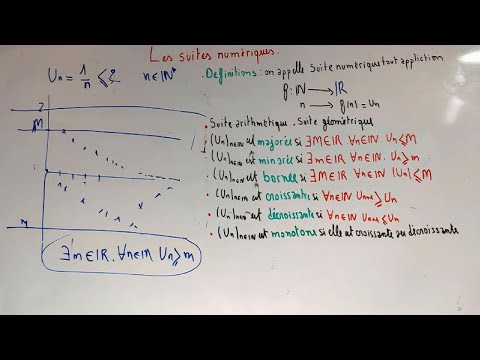 Les suites numériques.
Un = 1/n ≤ 2 n ∈ IN*
• Définitions : on appelle Suite numérique tout appliction
f: IN → IR
n → f(n) = Un
• Suite arithmétique . Suite géométrique
• (Un)n∈IN est majorée si ∃M∈IR ∀n∈IN Un ≤ M
• (Un)n∈IN est minorée si ∃m∈IR . ∀n∈IN . Un ≥ m
• (Un)n∈IN est bornée si ∃M∈IR ∀n∈IN |Un| ≤ M
• (Un)n∈IN est croissante si ∀n∈IN Un+1 ≥ Un
• (Un)n∈IN est décroissante si ∀n∈IN Un+1 ≤ Un
• (Un)n∈IN est monotone si elle est croissante au décroissante
2
M
∃m∈IR . ∀n∈IN Un ≥ m